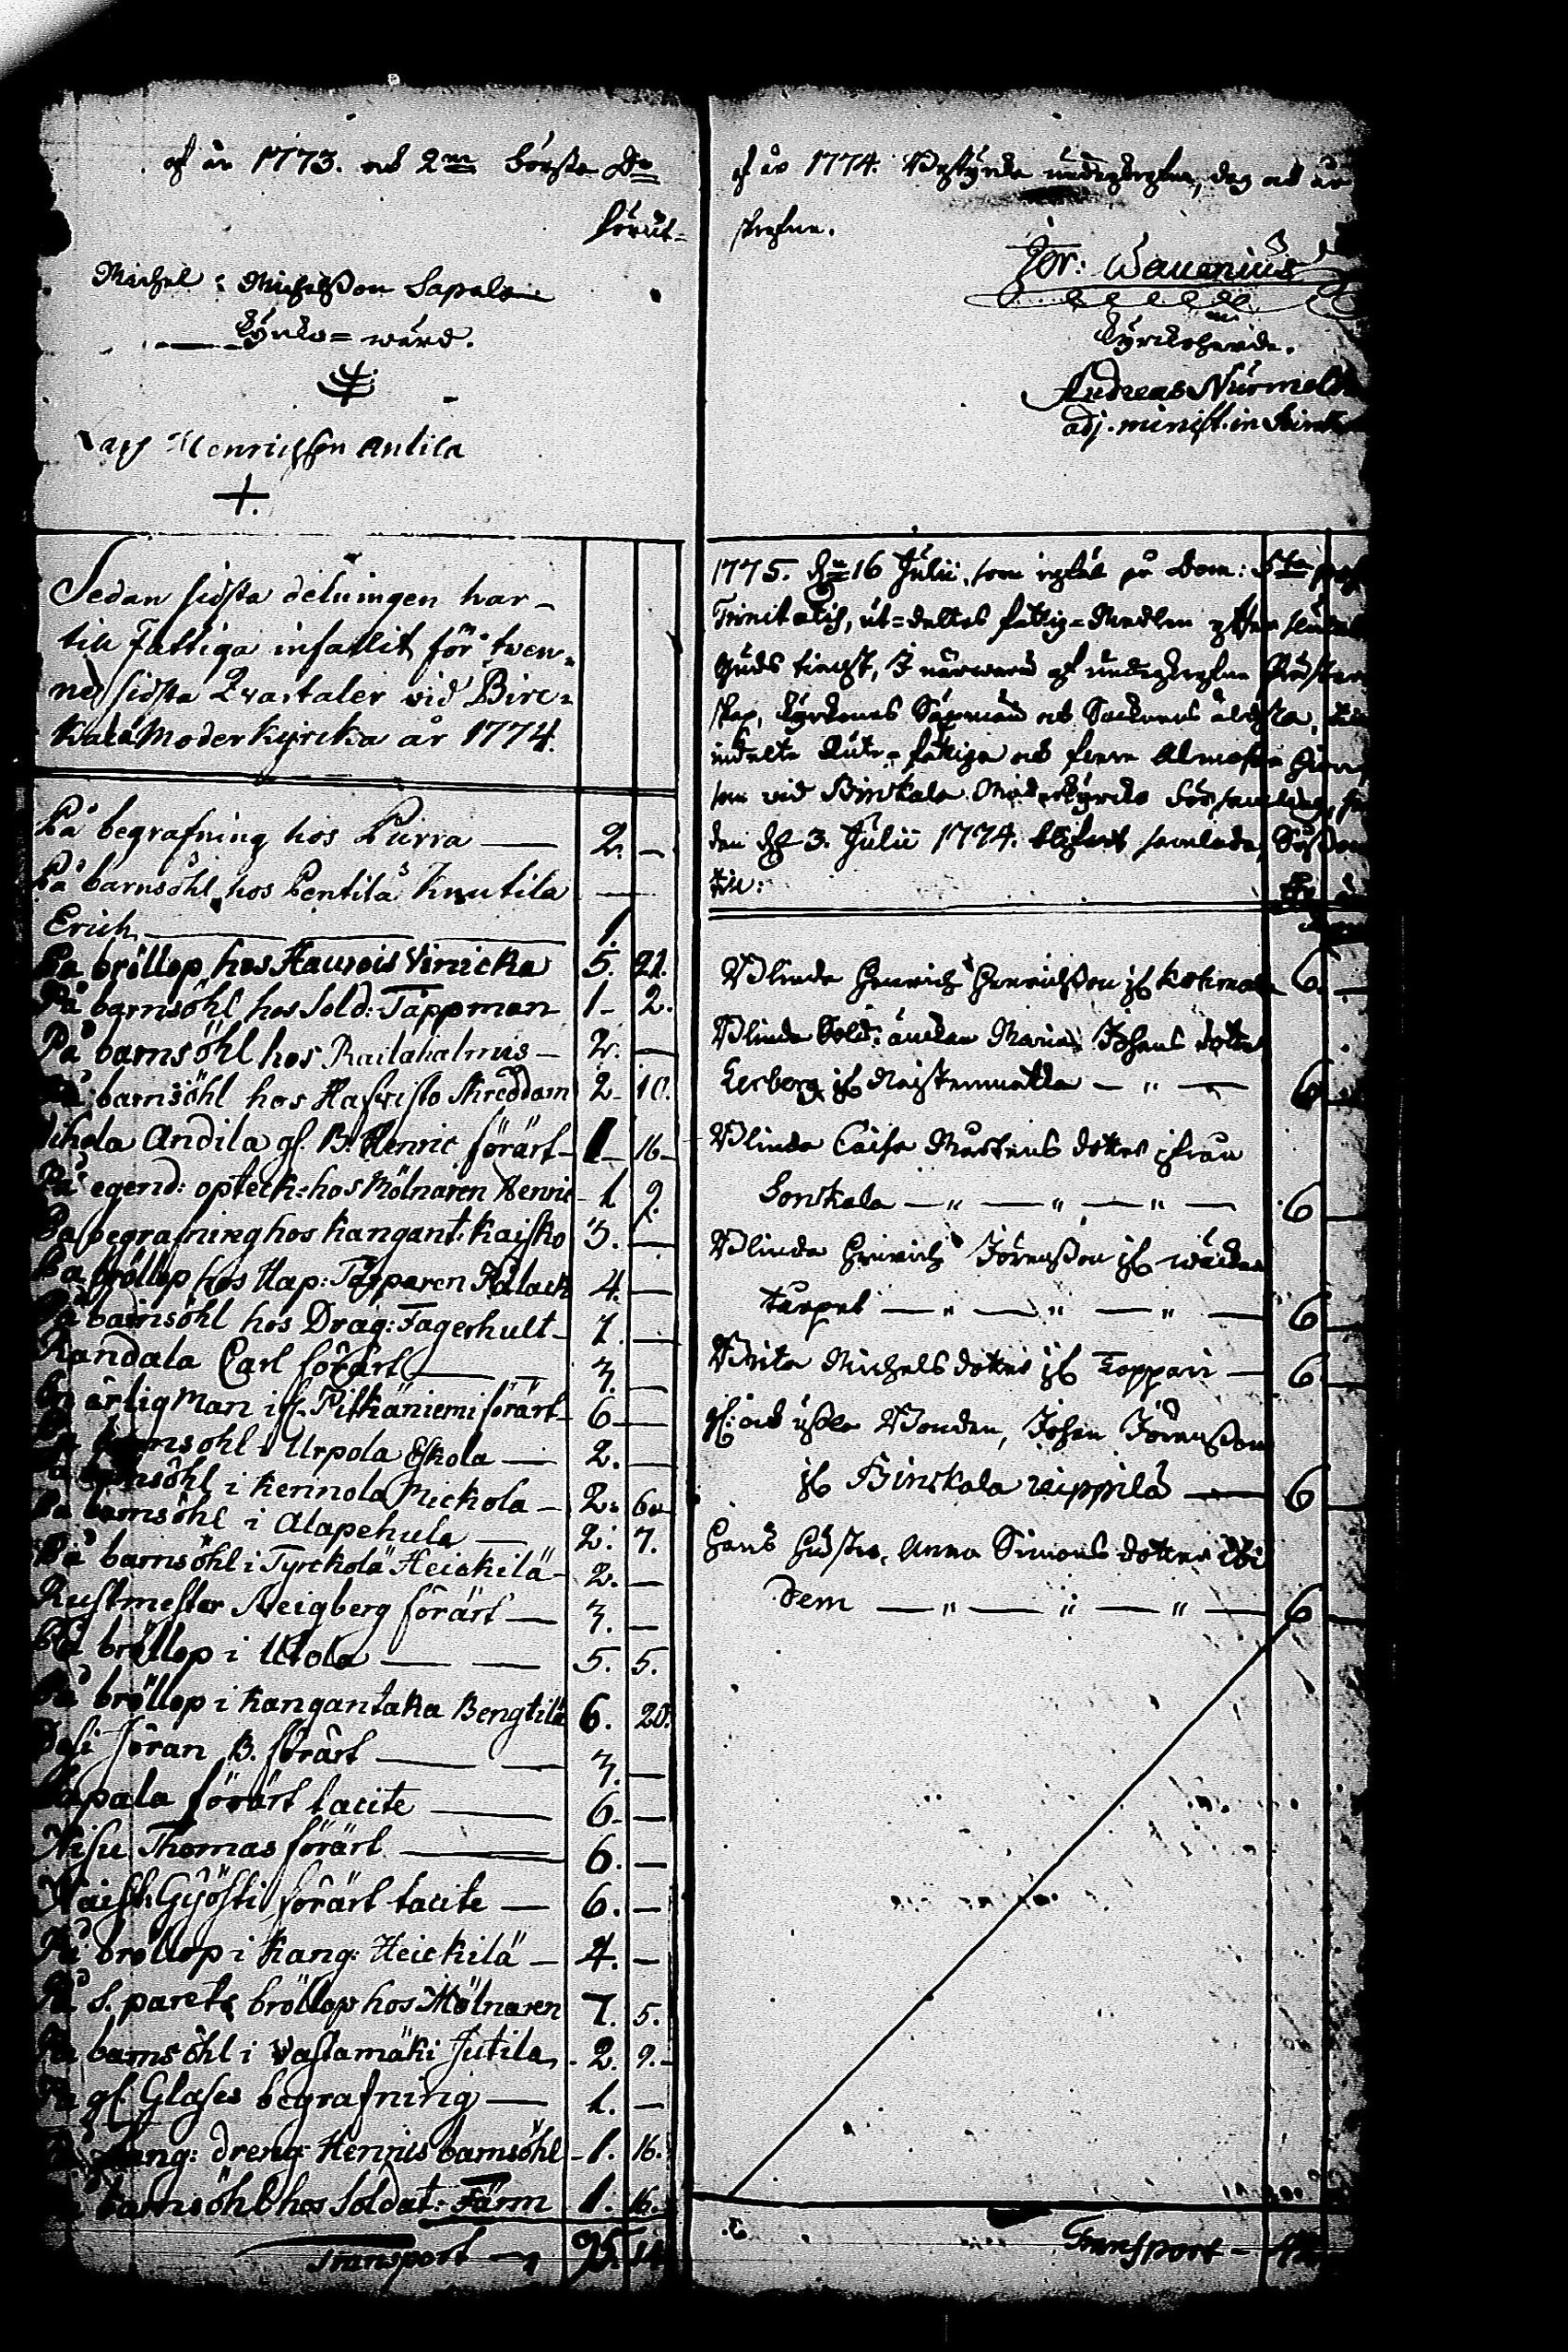 af år 1773. och 2ne första Do
förut-
Michel Michelsson Sapala
Kyrko=wärd.
Henrichsson Antila
+.
af år 1774. Betyga undertecknade, dag och år
skrefne.
Jor: Wauenius
Kyrckoherde.
Andreas Nurmel
adj. minist. in Birck
Sedan sidsta delningen har
till Fattiga infallit för twen-
ne sidsta Qvartaler vid Birc-
kala Moder Kyrcka år 1774.
På begrafning hos Purra — 2. —
På barnsöhl hos Pentilä Knutila —
Erich — 1.
På bröllop hos Haurois Vinicka 5. 21.
På barnsöhl hos Sold: Tappman 1- 2.
På barnsöhl hos Railahalmis — 2. —
På barnsöhl hos Hafvisto Skreddom 2- 10.
Andila gl. B. Henric förärt- 1- 16-
På egend: opteck: hos Mölnaren Henric- 1 9.
På begrafning hos Kangant: Kaisko 3. —
På bröllop hos Kap: Tasparen Kalack 4. —
På barnsöhl hos Drag: Fagerhult- 7. —
Randala Carl förärt — 3. —
En ärlig Man if. Pitkäniemi förärt- 6 —
På barnsöhl i Urpola Eskola — 2. —
På barnsöhl i Kennola Mickola — 2. 6.
På barnsöhl i Alapehula — 2. 7.
På barnsöhl i Tyrckolä Heickilä- 2. —
Rustmester Neigberg förärt — 3. —
På bröllop i Utola — 5. 5.
På bröllop i Kangantaka Bengtilä 6. 20.
Jöran B. förärt — 3. —
Sapala förärt tacite — 6- —
Nisu Thomas förärt — 6. —
Naist: Gyösti förärt tacite — 6. —
På bröllop i Kang: Heickilä — 4. —
På S. parets bröllop hos Mölnaren 7. 5.
På barnsöhl i Vastamäki Jutila. 2. 9.
På gl. Glases begrafning — 1. —
Kang: dreng Hennis barnsöhl - 1. 16.
På barnsöhl hos Soldat: Färm 1. 16.
Transport — 95. 14
1775. den 16 Julii, som inföll på Dom: 5ta post
Trinitatis, ut=deltes fattig=Medlen efter slutad
Guds tienst, I närwaro af undertecknade Präster-
skap, Kyrkones Säxmän och Socknens äldsta, till
indelte fattige och flere Almosehion
som vid Birckala Moderkyrcko Församling, se-
dan den 3. Julii 1774. blifvit samlade, Såsom
til:
Blinde Henrich Henrichsson if. Kokemala 6. —
Blinda Sold: änckan Maria Johans dotter
Lerberg if. Naistenmatka — " — 6
Blinda Caisa Mårtens dotter ifrån
Sorkala — " — " — " — 6
Blinde Henrich Jöransson if. wälden
turpet — " — " — " — 6
Brita Michels dotter if. Toppari — 6
gl: och usla Bonden, Johan Jöransson
if. Birckala reippilä — 6
Hans Hustru, Anna Simons dotter ibi
dem — " — " — " — 6
Transport — 42